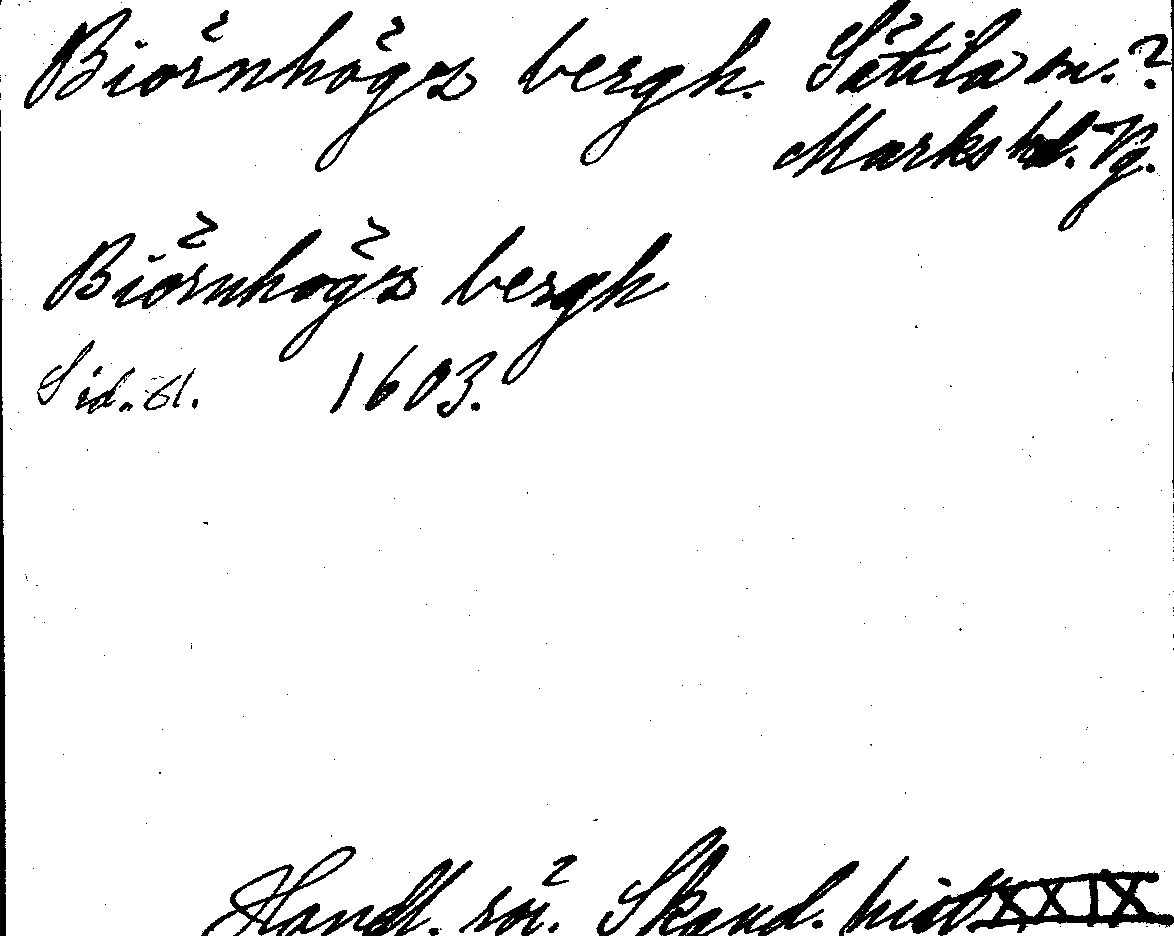 Biörnhögz bergh. Sätila sn.?
Marks hd. Vg.
Biörnhögz bergh
Sid. 61. 1603.
Handl. rör. Skand. hist. XXIX